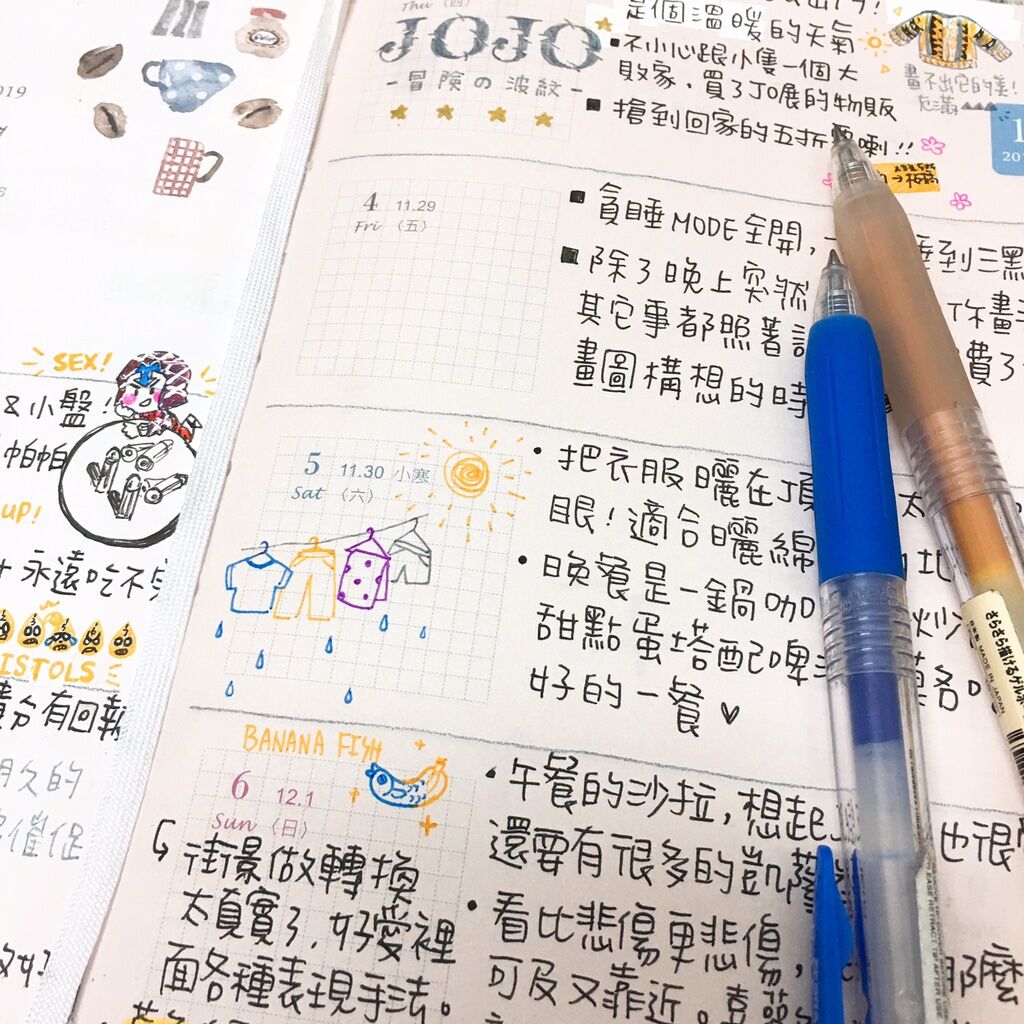 2019
SEX!
&小盤!
帕帕
UP!
永遠吃不完
ISTOLS
積分有回報
朋久的
催促
Thu (四)
JOJO
-冒險の波紋-
是個溫暖的天氣
■不小心跟小隻一個大
敗家,買了JO展的物販
■搶到回家的五折
喇!!
畫不出它的美!
充滿
4 11.29
Fri (五)
■貪睡MODE全開,
睡到三點
■除了晚上突然
你畫
其它事都照著
費了
畫圖構想的時
5 11.30 小寒
Sat (六)
•把衣服曬在頂
太
眼!適合曬綿
•晚餐是一鍋咖
炒
甜點蛋塔配啤
好的一餐♥
BANANA FISH
6 12.1
Sun (日)
街景做轉換
太真實了,好愛裡
面各種表現手法。
•午餐的沙拉,想起
也很
還要有很多的凱薩
•看比悲傷更悲傷,
那麼
可及又靠近。喜
さらさら描けるゲルボ
MADE IN JAPAN